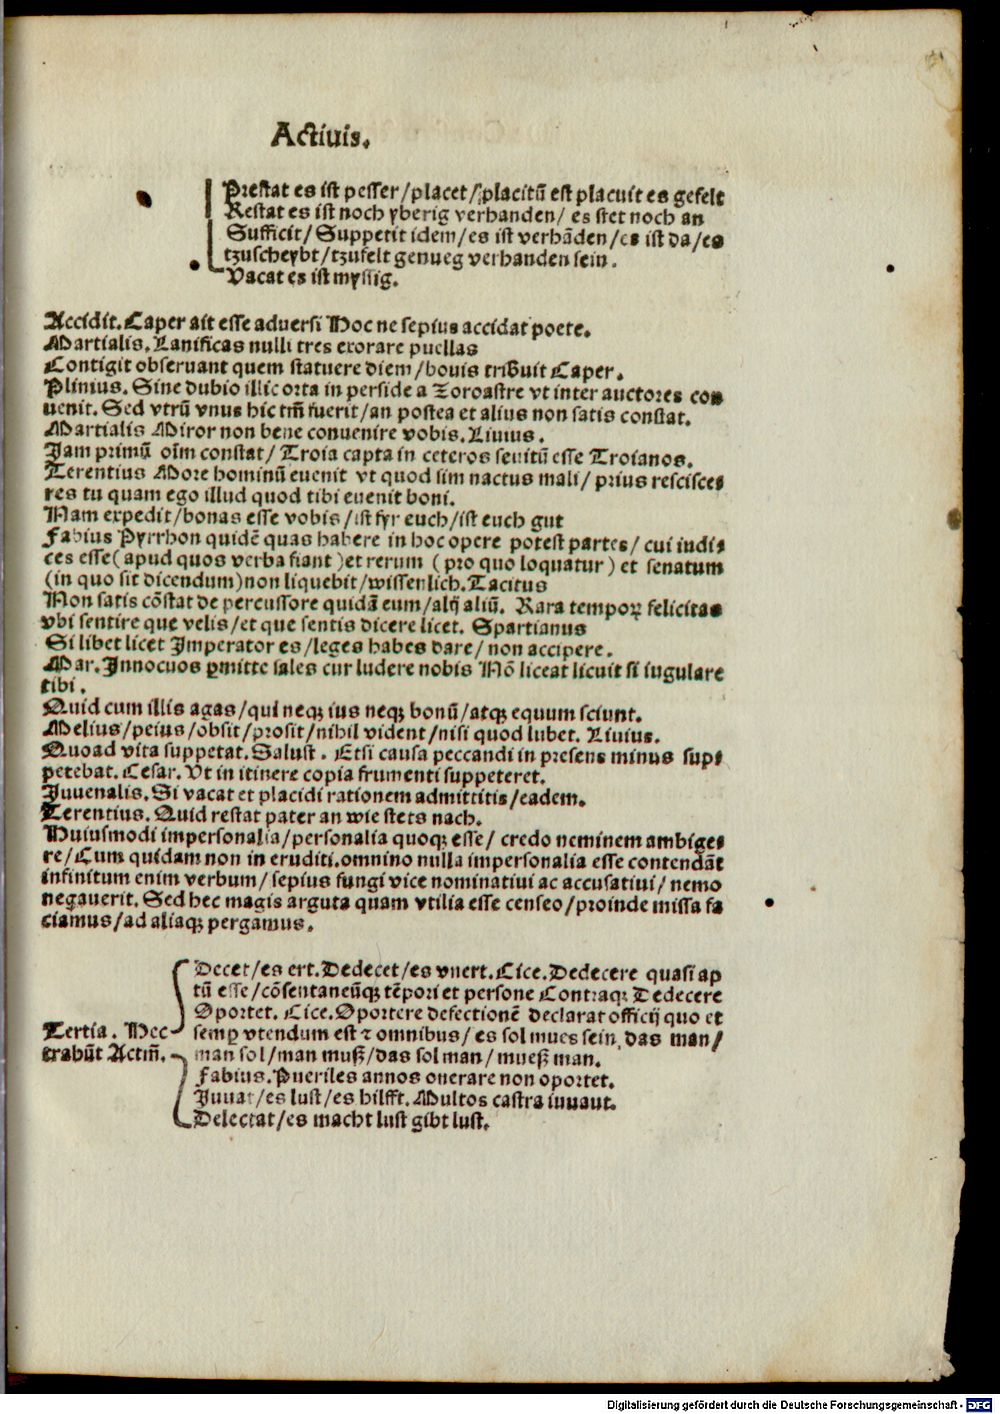 Activis.
Prestat es ist pesser/placet/placitū est placuit es gefelt
Restat es ist noch yberig verhanden/ es stet noch an
Sufficit/ Suppetit idem/es ist verhādē/es ist da/es
tzuscheybt/tzufelt genueg verhanden sein.
Vacat es ist myssig.
Accidit. Caper ait esse adversi Hoc ne sepius accidat poete.
Martialis. Lanificas nulli tres exorare puellas
Contigit observant quem statuere diem/bouis tribuit Caper.
Plinius. Sine dubio illic orta in perside a Zoroastre vt inter auctores con
uenit. Sed vtrū vnus hic tm̄ fuerit/an postea et alius non satis constat.
Martialis Miror non bene convenire vobis. Liuius.
Jam primū oīm constat/ Troia capta in ceteros seuitū esse Troianos.
Terentius More hominū euenit vt quod sim nactus mali/ prius rescisce
res tu quam ego illud quod tibi euenit boni.
Nam expedit/bonas esse vobis/ist fyr euch/ist euch gut
Fabius Pyrrhon quidē quas habere in hoc opere potest partes/ cui iudi
ces esse( apud quos verba fiant )et rerum ( pro quo loquatur ) et senatum
(in quo sit dicendum)non liquebit/wissenlich. Tacitus
Non satis cōstat de percussore quidā eum/alij aliū. Rara temporꝝ felicitas
vbi sentire que velis/et que sentis dicere licet. Spartianus
Si libet licet Imperator es/leges habes dare/ non accipere.
Mar. Innocuos ꝑmitte sales cur ludere nobis Nō liceat licuit si iugulare
tibi.
Quid cum illis agas/qui neqꝫ ius neqꝫ bonū/atqꝫ equum sciunt.
Melius/peius/obsit/prosit/nihil vident/nisi quod lubet. Liuius.
Quoad vita suppetat. Salust. Etsi causa peccandi in presens minus sup
petebat. Cesar. Vt in itinere copia frumenti suppeteret.
Juuenalis. Si vacat et placidi rationem admittitis/eadem.
Terentius. Quid restat pater an wie stets nach.
Huiusmodi impersonalia/personalia quoqꝫ esse/ credo neminem ambige
re/Cum quidam non in eruditi.omnino nulla impersonalia esse contendāt
infinitum enim verbum/ sepius fungi vice nominatiui ac accusatiui/ nemo
negauerit. Sed hec magis arguta quam vtilia esse censeo/proinde missa fa
ciamus/ad aliaqꝫ pergamus.
Decet/es ert. Dedecet/es vnert. Cice. Dedecere quasi ap
tū esse/cōsentaneūqꝫ tēpori et persone Contraqꝫ Dedecere
Oportet. Cice. Oportere defectionē declarat officij quo et
Tertia. Hec semꝑ vtendum est ⁊ omnibus/ es sol mues sein, das man/
trahūt Actm̄. man sol/man muß/das sol man/ mueß man.
Fabius. Pueriles annos onerare non oportet.
Juuat/es lust/es hilfft. Multos castra iuuaut.
Delectat/es macht lust gibt lust.
Digitalisierung gefördert durch die Deutsche Forschungsgemeinschaft - DFG